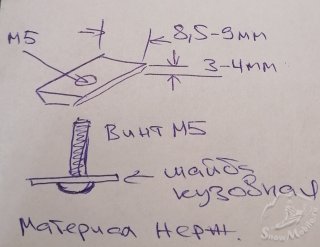 М5
8,5-9мм
3-4мм
Винт М5
шайба
кузовная
Материал нерж.
SnowMobile